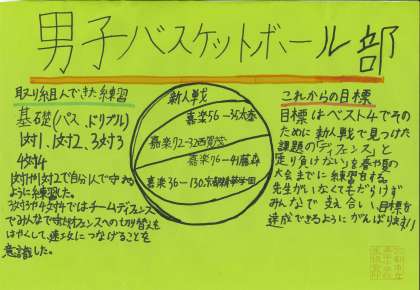 男子バスケットボール部
取り組んできた練習
基礎(パス、ドリブル)
1対1、1対2、3対3
4対4
1対1や1対2で自分1人で守れる
ように練習した。
3対3や4対4ではチームディフェンス
でみんなで守りオフェンスへの切り替えを
はやくして、速攻につなげることを
意識した。
新人戦
嘉楽56-35太秦
嘉楽92-32西賀茂
嘉楽76-41藤森
嘉楽36-130京都精華学園
これからの目標
目標はベスト4でその
ために新人戦で見つけた
課題の「ディフェンス」と
「走り負けない」を春季の
大会までに練習をする。
先生がいなくてもだらけず
みんなで支え合い、目標を
達成できるようにがんばります!!